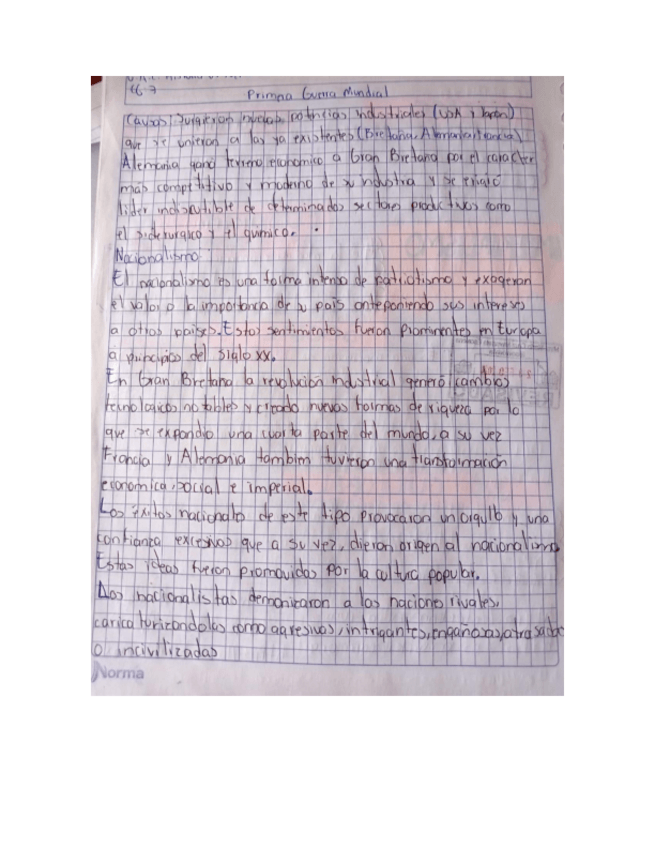 16-7
Primera Guerra Mundial
Causas: Surgieron nuevas potencias industriales (USA y Japon)
que se unieron a las ya existentes (Bretaña Alemania Francia)
Alemania gano terreno economico a Gran Bretaña por el caracter
mas competitivo y moderno de su industria y se erigió
lider indiscutible de determinados sectores productivos como
el siderurgico y el quimico.
Nacionalismo
El nacionalismo es una forma intensa de patriotismo y exageran
el valor o la importancia de su pais anteponiendo sus intereses
a otros paises. Estos sentimientos fueron prominentes en Europa
a principios del siglo XX.
En Gran Bretaña la revolución industrial generó cambios
tecnologicos notables y creado nuevas formas de riqueza por lo
que se expandio una cuarta parte del mundo, a su vez
Francia y Alemania tambien tuvieron una transformación
economica, social e imperial.
Los éxitos nacionales de este tipo provocaron un orgullo y una
confianza excesivos que a su vez, dieron origen al nacionalismo
Estas ideas fueron promovidas por la cultura popular.
Los nacionalistas demonizaron a las naciones rivales,
caricaturizandolas como agresivas, intrigantes, engañosas, atrasadas
o incivilizadas
Norma